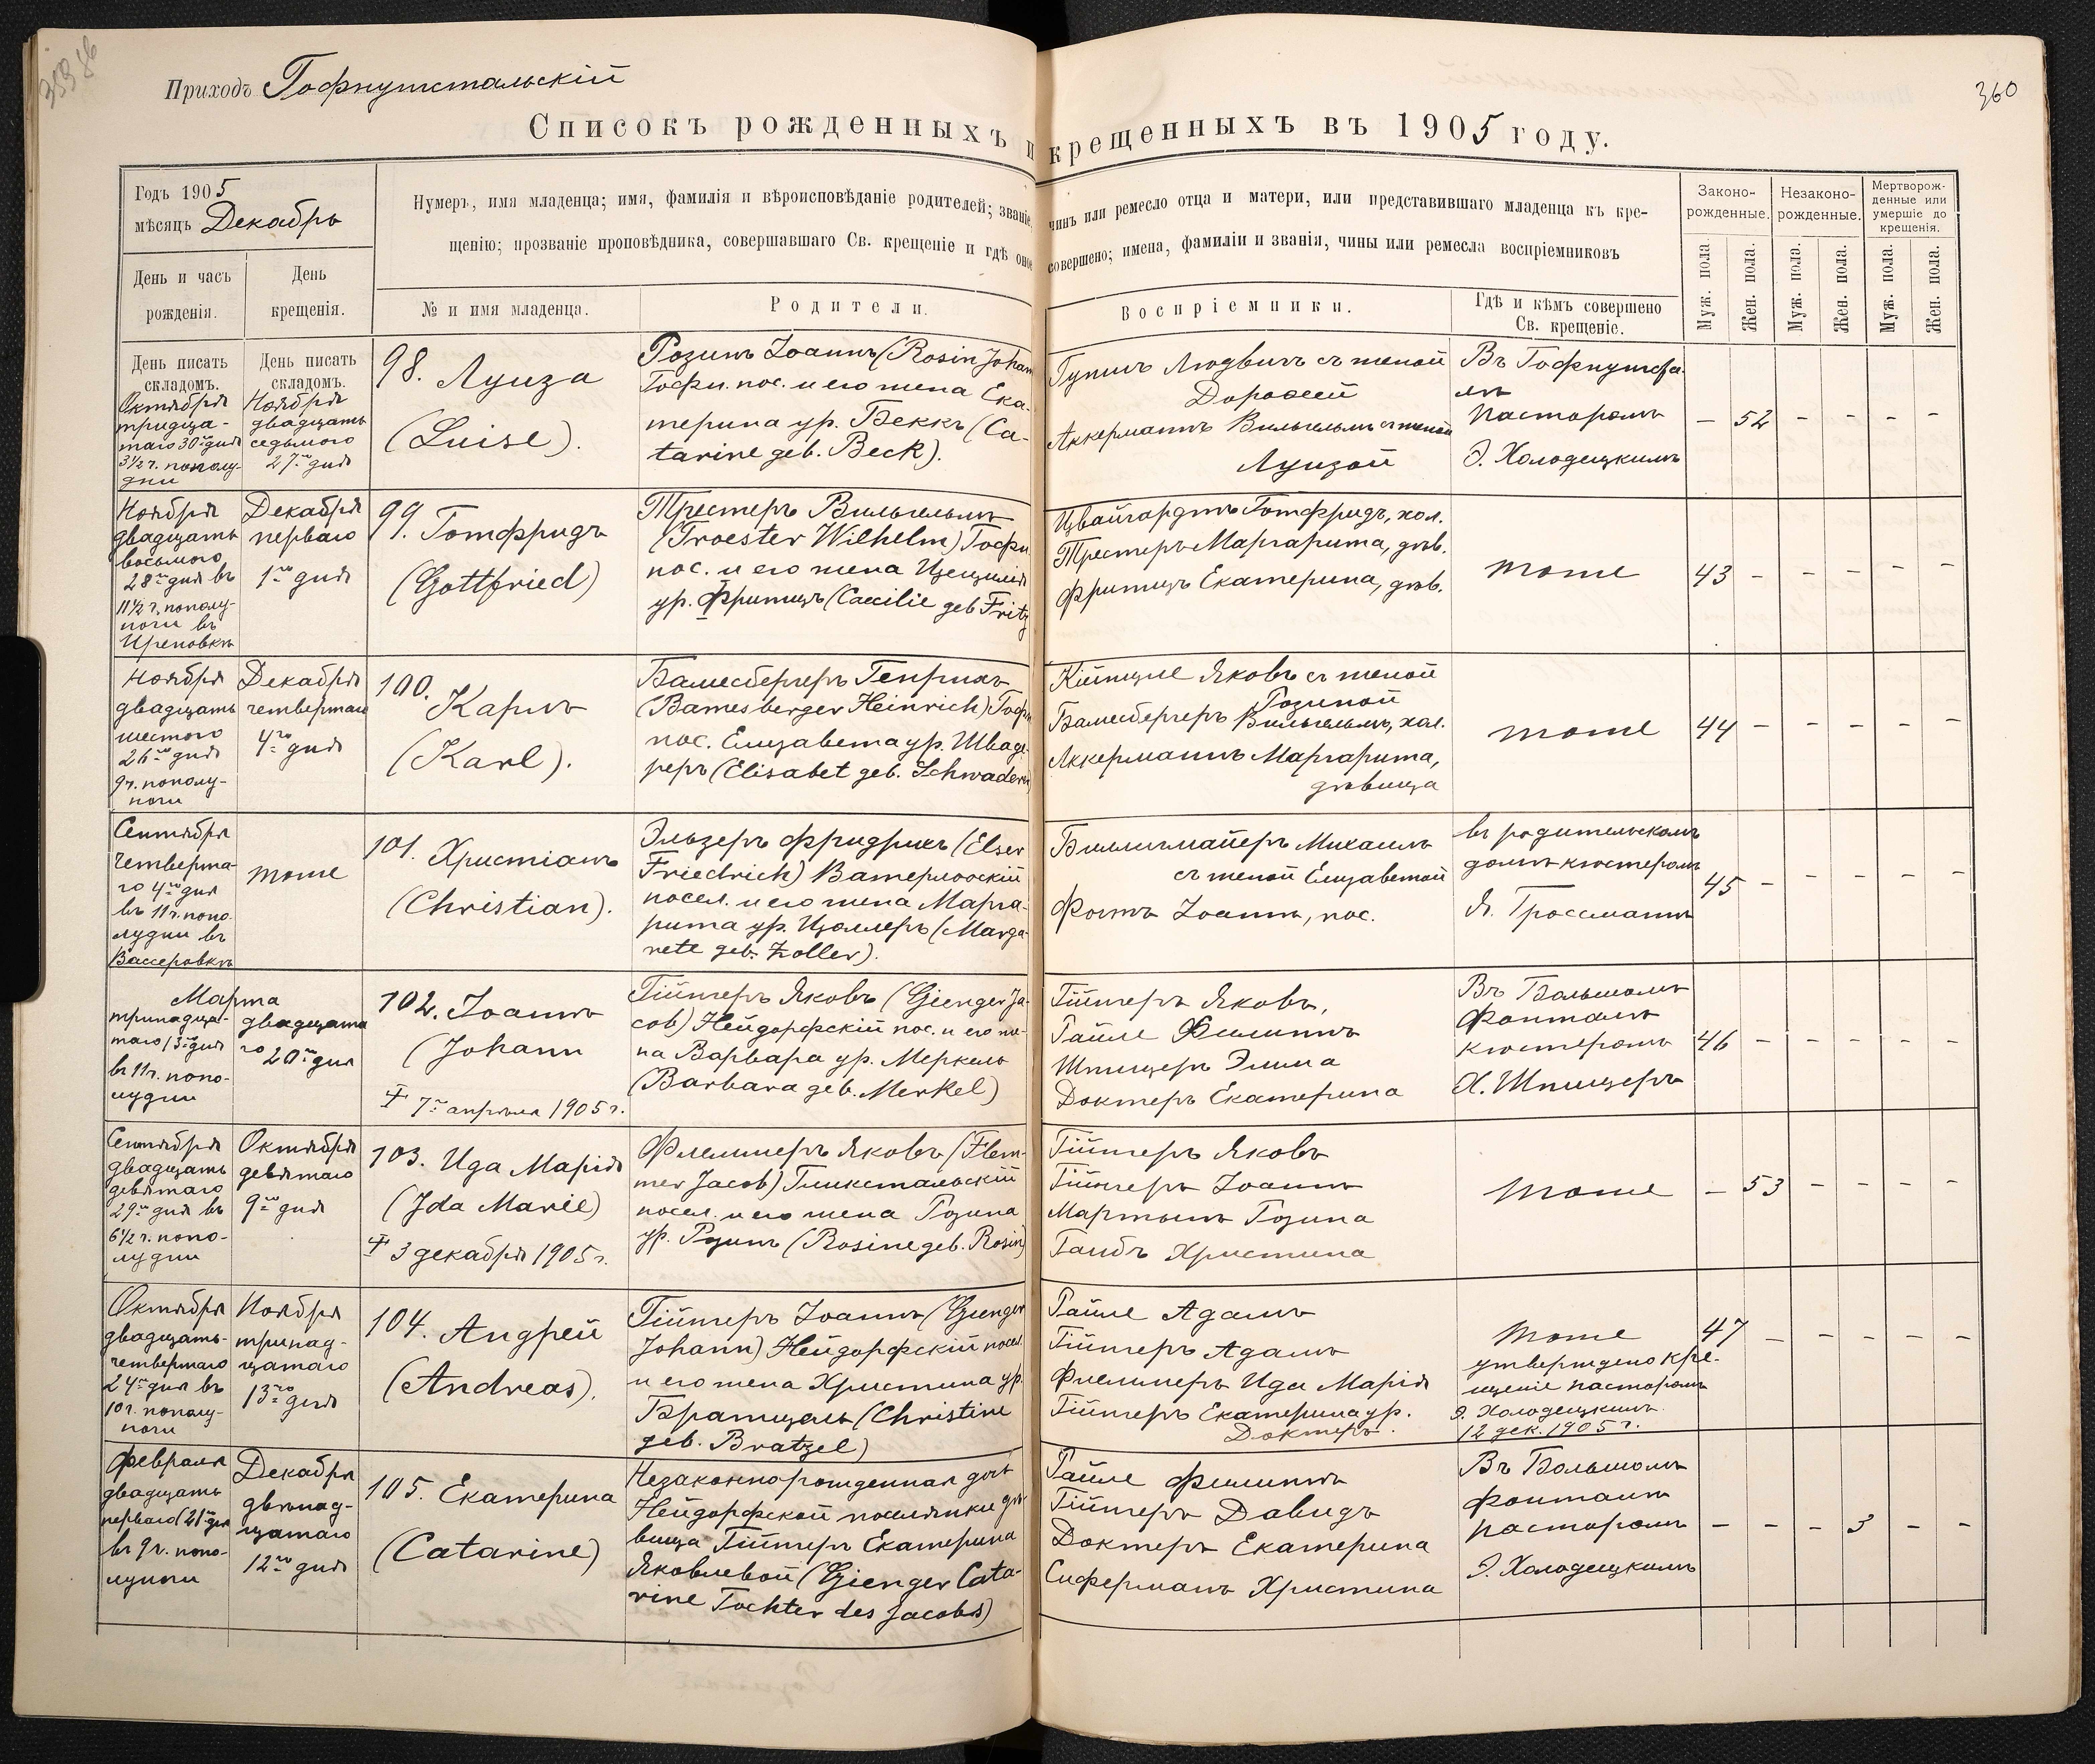 359 об
360
Приходъ Гофнунгстальскій
Списокъ рожденныхъ и крещенныхъ въ 1905 году.
Годъ 1905
мѣсяцъ Декабрь
Нумеръ, имя младенца; имя, фамилія и вѣроисповѣданіе родителей; званіе, чинъ или ремесло отца и матери, или представившаго младенца къ кре-
щенію; прозваніе проповѣдника, совершавшаго Св. крещеніе и гдѣ оное совершено; имена, фамиліи и званія, чины или ремесла воспріемниковъ
Законо-
рожденные.
Незаконо-
рожденные.
Мертворож-
денные или
умершіе до
крещенія.
День и часъ
рожденія.
День
крещенія.
№ и имя младенца.
Родители.
Воспріемники.
Гдѣ и кѣмъ совершено
Св. крещеніе.
Муж. пола.
Жен. пола.
Муж. пола.
Жен. пола.
Муж. пола.
Жен. пола.
День писать
складомъ.
Октября
тридца-
таго 30го дня
3½ ч. пополу-
дни
День писать
складомъ.
Ноября
двадцать
седьмого
27го дня
98. Луиза
(Luise).
Розинъ Іоаннъ (Rosin Johann
Гофн. пос. и его жена Ека-
терина ур. Беккъ (Ca-
tarine geb. Beck).
Людвигъ съ женой
Доротеей
Аккерманнъ Вильгельмъ съ женой
Луизой
Въ Гофнунгста-
лѣ
Пасторомъ
Э. Холодецкимъ
— 52 — — — —
Ноября
двадцать
восьмого
28го дня въ
11½ ч. пополу-
ночи въ
Декабря
перваго
1го дня
99. Готфридъ
(Gottfried)
Трестеръ Вильгельмъ
(Troester Wilhelm) Гофн.
пос. и его жена Цецилія
ур. Фритцъ (Caecilie geb Fritz
Цвайгардтъ Готфридъ, хол.
Трестеръ Маргарита, дѣв.
Фритцъ Екатерина, дѣв.
тоже
43 — — — — —
Ноября
двадцать
шестого
26го дня
9 ч. пополу-
ночи
Декабря
четвертаго
4го дня
100. Карлъ
(Karl).
Бамесбергеръ Генрихъ
(Bamesberger Heinrich) Гофн
пос. Елизавета ур. Шваде-
реръ (Elisabet geb. Schwaderer
Яковъ съ женой
Розиной
Бамесбергеръ Вильгельмъ, хол.
Аккерманнъ Маргарита,
дѣвица
тоже
44 — — — — —
Сентября
четверта-
го 4го дня
въ 11 ч. попо-
лудни въ
Вассеровкѣ
тоже
101. Христіанъ
(Christian).
Эльзеръ Фридрихъ (Elser
Friedrich) Ватерлооскій
посел. и его жена Марга-
рита ур. Цоллеръ (Marga-
rete geb. Zoller).
Биллигмайеръ Михаилъ
съ женой Елизаветой
Фогтъ Іоаннъ, пос.
въ родительскомъ
домѣ кюстеромъ
Я. Гроссманнъ
45 — — — — —
Марта
тринадца-
таго 13го дня
въ 11 ч. попо-
лудни
двадцата-
го 20го дня
102. Іоаннъ
(Johann
† 7го апрѣля 1905 г.
Гіенгеръ Яковъ (Gienger Ja-
cob) Нейдорфскій пос. и его же-
на Варвара ур. Меркель
(Barbara geb. Merkel)
Гіенгеръ Яковъ,
Райле Филиппъ
Шпицеръ Эмма
Доктеръ Екатерина
Въ Большомъ
Фонтанѣ
кюстеромъ
Х. Шпицеръ
46 — — — — —
Сентября
двадцать
девятаго
29го дня въ
6½ ч. попо-
лудни
Октября
девятаго
9го дня
103. Ида Марія
(Ida Marie)
† 3 декабря 1905 г.
Флеммеръ Яковъ (Flem-
mer Jacob) Гликстальскій
посел. и его жена Розина
ур. Розинъ (Rosine geb. Rosin)
Гіенгеръ Яковъ
Гіенгеръ Іоаннъ
Мартынъ Розина
Гаибъ Христина
тоже
— 53 — — — —
Октября
двадцать-
четвертаго
24го дня въ
10 ч. пополу-
ночи
Ноября
тринад-
цатаго
13го дня
104. Андрей
(Andreas).
Гіенгеръ Іоаннъ (Gienger
Johann) Нейдорфскій посел.
и его жена Христина ур.
Братцель (Christine
geb. Bratzel)
Райле Адамъ
Гіенгеръ Адамъ
Флеммеръ Ида Марія
Гіенгеръ Екатерина ур.
Доктеръ.
тоже
утверждено кре-
щеніе пасторомъ
Э. Холодецкимъ
12 дек. 1905 г.
47 — — — — —
Февраля
двадцать
перваго (21го дня
въ 9 ч. попо-
луночи
Декабря
двѣнад-
цатаго
12го дня
105. Екатерина
(Catarine)
Незаконнорожденная дочь
Нейдорфской поселянки дѣ-
вица Гіенгеръ Екатерина
Яковлевой (Gienger Cata-
rine Tochter des Jacobs)
Райле Филиппъ
Гіенгеръ Давидъ
Доктеръ Екатерина
Сиферманъ Христина
Въ Большомъ
Фонтанѣ
пасторомъ
Э. Холодецкимъ
— — — 3 — —